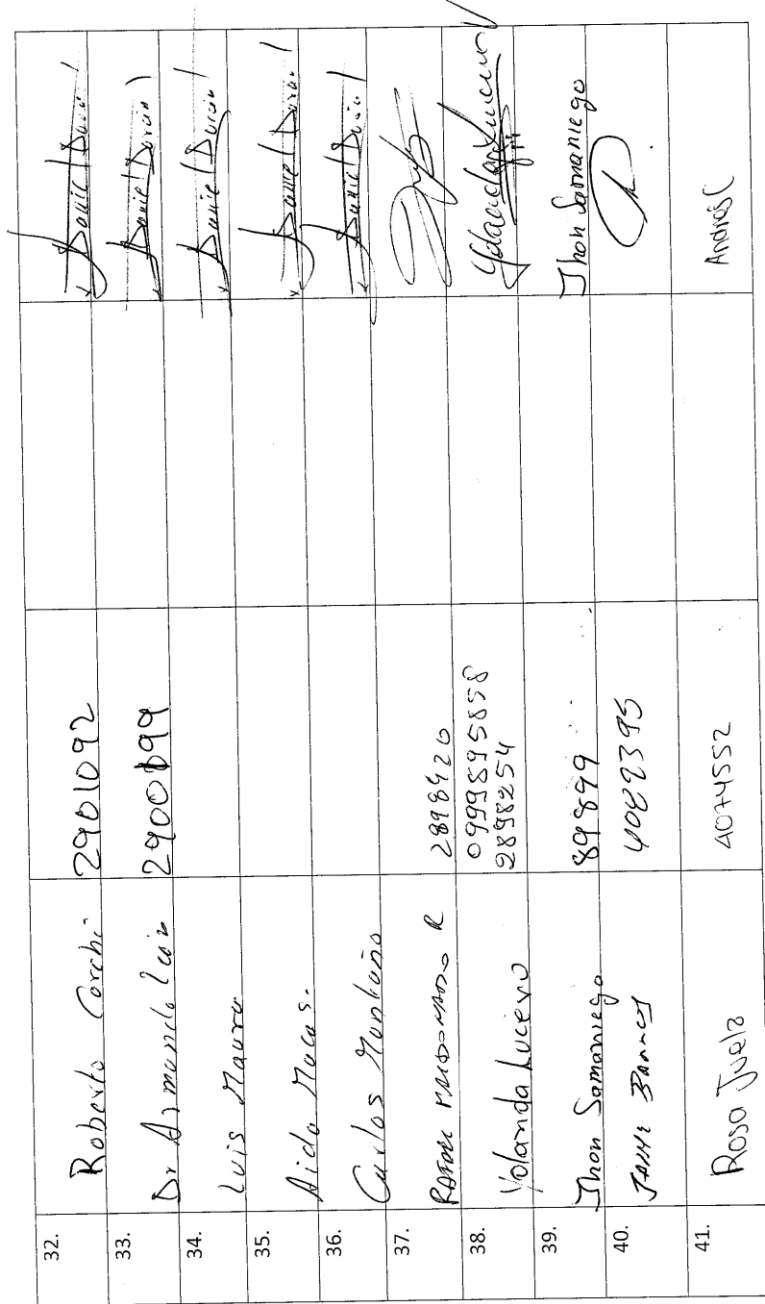 32. Roberto Corchi 2901092 Daniel Durán
33. Dr Armando 2900699 Daniel Durán
34. Luis Mauro Daniel Durán
35. Aida Macas. Daniel Durán
36. Carlos Montaño Daniel Durán
37. Rafael Maldonado R 2898920
38. Yolanda Lucero 0999895858 Yolanda Lucero
2898254
39. Jhon Samaniego 89899 Jhon Samaniego
40. 4089395
41. Rosa Juela 4074552 Andrés C